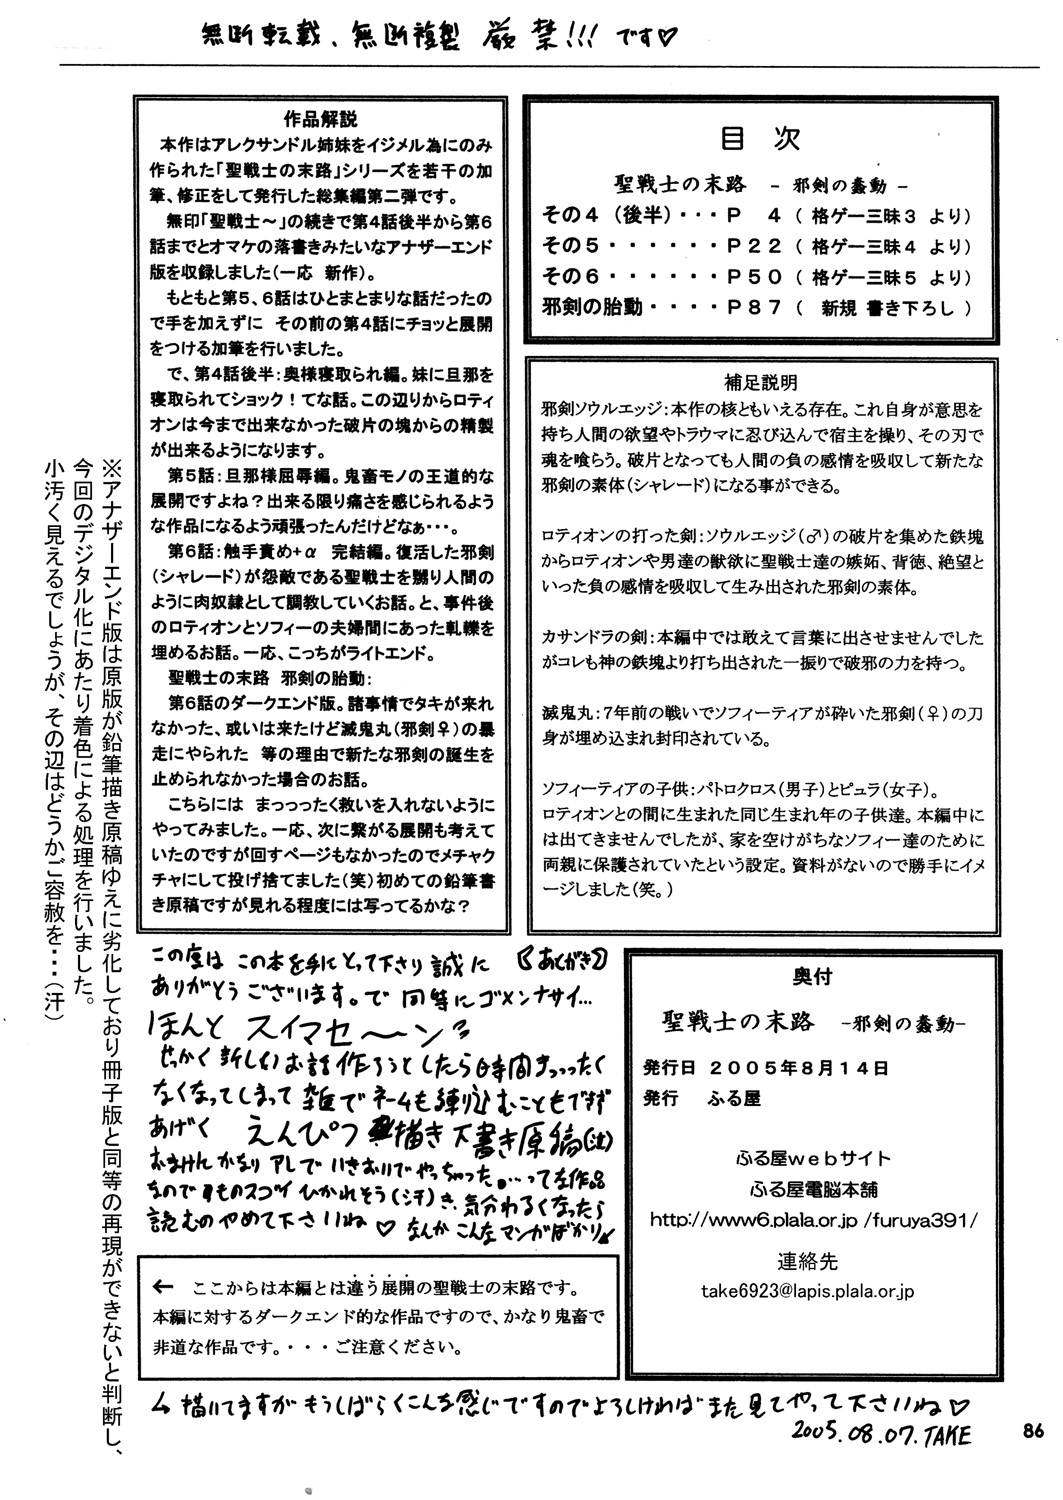 無断転載、無断複製 厳禁!!! です♡
作品解説
本作はアレクサンドル姉妹をイジメル為にのみ
作られた「聖戦士の末路」シリーズを若干の加
筆、修正をして発行した総集編第二弾です。
無印「聖戦士～」の続きで第４話後半から第６
話までとオマケの落書きみたいなアナザーエンド
版を収録しました（一応 新作）。
もともと第５、６話はひとまとまりな話だったの
で手を加えずに その前の第４話にチョッと展開
をつける加筆を行いました。
で、第４話後半：奥様寝取られ編。妹に旦那を
寝取られてショック！てな話。この辺りからロテ
ィオンは今まで出来なかった破片の塊からの精製
が出来るようになります。
第５話：旦那様屈辱編。鬼畜モノの王道的な
展開ですよね？出来る限り痛さを感じられるよう
な作品になるよう頑張ったんだけどなぁ・・・。
第６話：触手責め+α 完結編。復活した邪剣
（シャレード）が怨敵である聖戦士を嬲り人間の
ように肉奴隷として調教していくお話。と、事件後
のロティオンとソフィーの夫婦間にあった軋轢を
埋めるお話。一応、こっちがライトエンド。
聖戦士の末路 邪剣の胎動：
第６話のダークエンド版。諸事情でタキが来れ
なかった、或いは来たけど滅鬼丸（邪剣♀）の暴
走にやられた 等の理由で新たな邪剣の誕生を
止められなかった場合のお話。
こちらには まっっったく救いを入れないように
やってみました。一応、次に繋がる展開も考えて
いたのですが回すページもなかったのでメチャク
チャにして投げ捨てました（笑）初めての鉛筆書
き原稿ですが見れる程度には写ってるかな？
目 次
聖戦士の末路 －邪剣の蠢動－
その４（後半）・・・Ｐ ４（ 格ゲー三昧３ より）
その５・・・・・・Ｐ２２（ 格ゲー三昧４ より）
その６・・・・・・Ｐ５０（ 格ゲー三昧５ より）
邪剣の胎動・・・・Ｐ８７（ 新規 書き下ろし ）
補足説明
邪剣ソウルエッジ：本作の核ともいえる存在。これ自身が意思を
持ち人間の欲望やトラウマに忍び込んで宿主を操り、その刃で
魂を喰らう。破片となっても人間の負の感情を吸収して新たな
邪剣の素体（シャレード）になる事ができる。
ロティオンの打った剣：ソウルエッジ（♂）の破片を集めた鉄塊
からロティオンや男達の獣欲に聖戦士達の嫉妬、背徳、絶望と
いった負の感情を吸収して生み出された邪剣の素体。
カサンドラの剣：本編中では敢えて言葉に出させませんでした
がコレも神の鉄塊より打ち出された一振りで破邪の力を持つ。
滅鬼丸：7年前の戦いでソフィーティアが砕いた邪剣（♀）の刀
身が埋め込まれ封印されている。
ソフィーティアの子供：パトロクロス（男子）とピュラ（女子）。
ロティオンとの間に生まれた同じ生まれ年の子供達。本編中に
は出てきませんでしたが、家を空けがちなソフィー達のために
両親に保護されていたという設定。資料がないので勝手にイメ
ージしました（笑。）
※アナザーエンド版は原版が鉛筆描き原稿ゆえに劣化しており冊子版と同等の再現ができないと判断し、
今回のデジタル化にあたり着色による処理を行いました。
小汚く見えるでしょうが、その辺はどうかご容赦を・・・（汗）
【あとがき】
この度は この本を手にとって下さり誠に
ありがとうございます。で 同時にゴメンナサイ…
ほんと スイマセ～ン
せっかく新しいお話作ろうとしたら時間まっったく
なくなってしまって 雑でネームも練り込むこともできず
あげく えんぴつ描き下書き原稿(泣)
おまけんかなり アレで いきおいでやっちゃった…って な作品
なので ものスゴイ ひかれそう(汗) き、気分わるくなったら
読むのやめて下さいね♡ なんか こんなマンガばかり
← ここからは本編とは違う展開の聖戦士の末路です。
本編に対するダークエンド的な作品ですので、かなり鬼畜で
非道な作品です。・・・ご注意ください。
描いてますが もうしばらくこんな感じですのでよろしければ また見てやって下さいね♡
2005.08.07. TAKE
奥付
聖戦士の末路 －邪剣の蠢動－
発行日 ２００５年８月１４日
発行 ふる屋
ふる屋ｗｅｂサイト
ふる屋電脳本舗
http://www6.plala.or.jp /furuya391/
連絡先
take6923@lapis.plala.or.jp
86